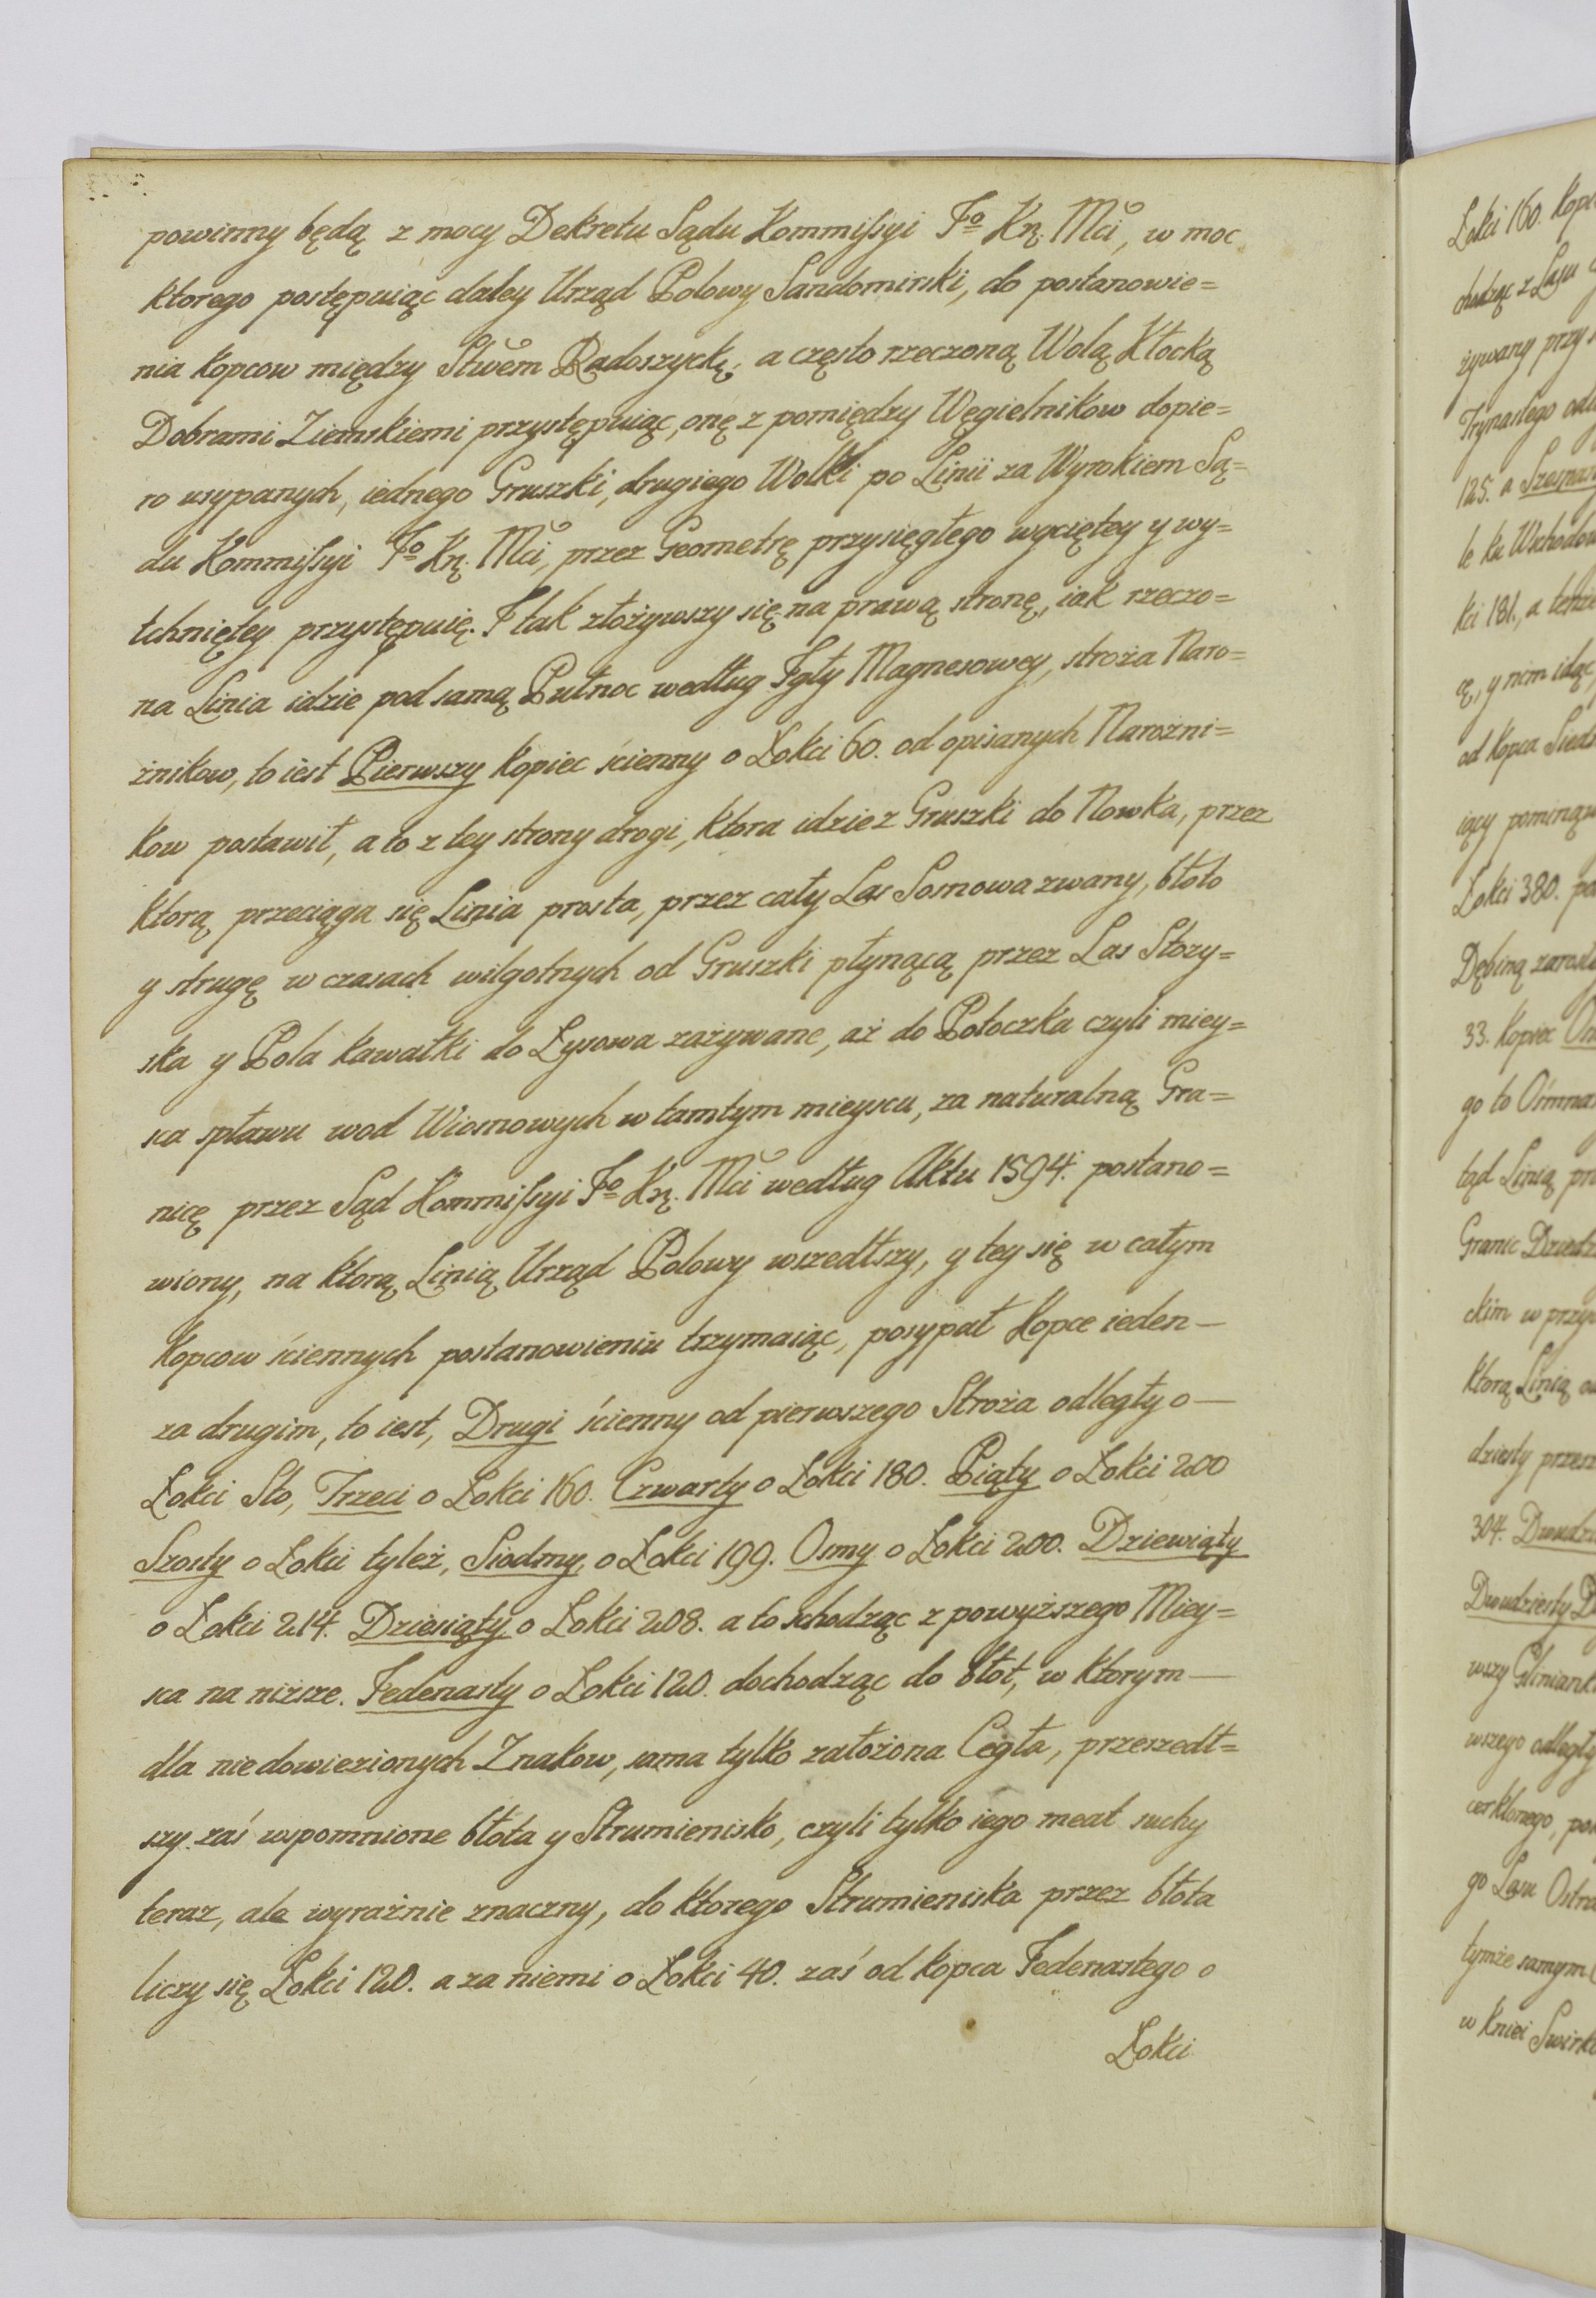 powinny będą z mocy Dekretu Sądu Kommissyi Jo Kṇ. Mci, w moc
ktorego postępuiąc daley Urząd Polowy Sandomirski, do postanowie=
nia kopcow między Stwem Radoszyckę, a często rzeczoną Wolą Kłocką
Dobrami Ziemskiemi przystępuiąc, onę z pomiędzy Węgielnikow dopie=
ro usypanych, iednego Gruszki, drugiego Wolki po Linii za Wyrokiem Są=
du Kommissyi Jo Kṇ. Mci, przez Geometrę przysięgłego wyciętey y wy=
tchniętey przystępuię. I tak złożywszy się na prawą stronę, iak rzeczo=
na Linia idzie pod samą Pułnoc według Igły Magnesowey, stroża Naro=
żnikow, to iest Pierwszy kopiec ścienny o Łokci 60. od opisanych Narożni=
kow postawił, a to z tey strony drogi, ktora idzie z Gruszki do Nowka, przez
ktorą przeciąga się Linia prosta, przez cały Las Sosnowa zwany, błoto
y strugę w czasach wilgotnych od Gruszki płynącą przez Las Stozy=
ska y Pola kawałki do Łysowa zażywane, aż do Potoczka czyli miey=
sca spławu wod Wiosnowych w tamtym mieyscu, za naturalną Gra=
nicę przez Sąd Kommissyi Jo Kṇ. Mci według Aktu 1594. postano=
wiony, na ktorą Linią Urząd Polowy wszedłszy, y tey się w całym
kopcow ściennych postanowieniu trzymaiąc, posypał Kopce ieden —
za drugim, to iest, Drugi ścienny od pierwszego Stroża odległy o —
Łokci Sto, Trzeci o Łokci 160. Czwarty o Łokci 180. Piąty o Łokci 200
Szosty o Łokci tyleż, Siodmy, o Łokci 199. Osmy o Łokci 200. Dziewiąty
o Łokci 214. Dziesiąty o Łokci 208. a to schodząc z powyższego Miey=
sca na niższe. Jedenasty o Łokci 120. dochodząc do błot, w ktorym —
dla nie dowiezionych Znakow, sama tylko założona Cegła, przeszedł=
szy zaś wspomnione błota y Strumienisko, czyli tylko iego meat suchy
teraz, ale wyraźnie znaczny, do ktorego Strumieniska przez błota
liczy się Łokci 120. a za niemi o Łokci 40. zaś od kopca Jedenastego o
Łokci
Łokci 160. kop
chodząc z Lasu
żywany przy
Trzynastego odl
125. a Szesnas
le ku Wschodow
kci 181., a temże
cą, y nim idąc
od kopca Siedm
iący pominąw
Łokci 380. po
Dębiną zarosł
33. kopiec
go to Ośmna
tąd Linią pr
Granic Dziedz
ckim w przy
ktorą Linią o
dziesty przesz
304. Dwudzie
Dwudziesty
wszy Gliniank
wszego odległy
cer ktorego, po
go Lasu Ostr
tymże samym
w kniei Swirk